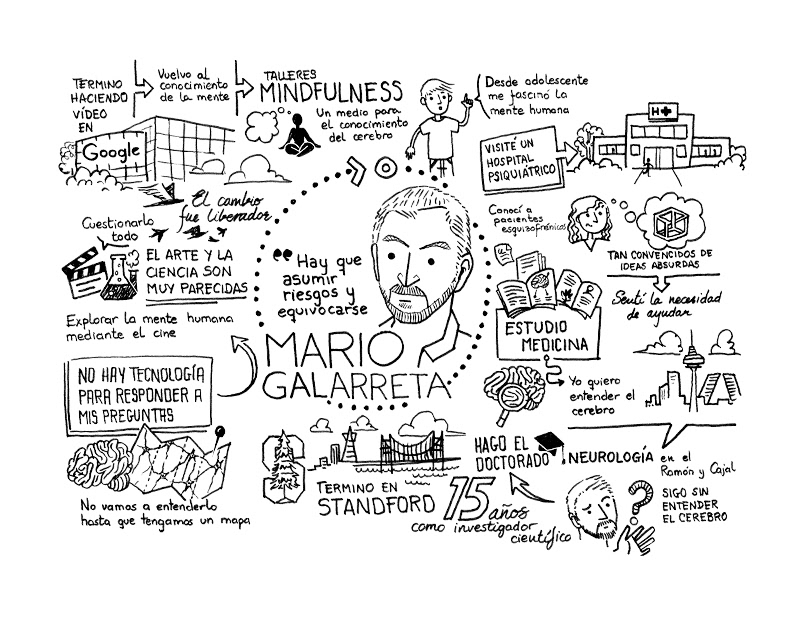 Desde adolescente
me fascinó la
mente humana
VISITÉ UN
HOSPITAL
PSIQUIÁTRICO
H+
Conocí a
pacientes
esquizofrénicos
TAN CONVENCIDOS DE
IDEAS ABSURDAS
Sentí la necesidad
de ayudar
ESTUDIO
MEDICINA
Yo quiero
entender el
cerebro
NEUROLOGÍA en el
Ramón y Cajal
SIGO SIN
ENTENDER
EL CEREBRO
?
HAGO EL
DOCTORADO
15 años
como investigador
científico
TERMINO EN
STANDFORD
S
NO HAY TECNOLOGÍA
PARA RESPONDER A
MIS PREGUNTAS
No vamos a entenderlo
hasta que tengamos un mapa
Cuestionarlo
todo
EL ARTE Y LA
CIENCIA SON
MUY PARECIDAS
Explorar la mente humana
mediante el cine
El cambio
fue liberador
TERMINO
HACIENDO
VÍDEO
EN
Google
Vuelvo al
conocimiento
de la mente
TALLERES
MINDFULNESS
Un medio para
el conocimiento
del cerebro
"Hay que
asumir
riesgos y
equivocarse
MARIO
GALARRETA